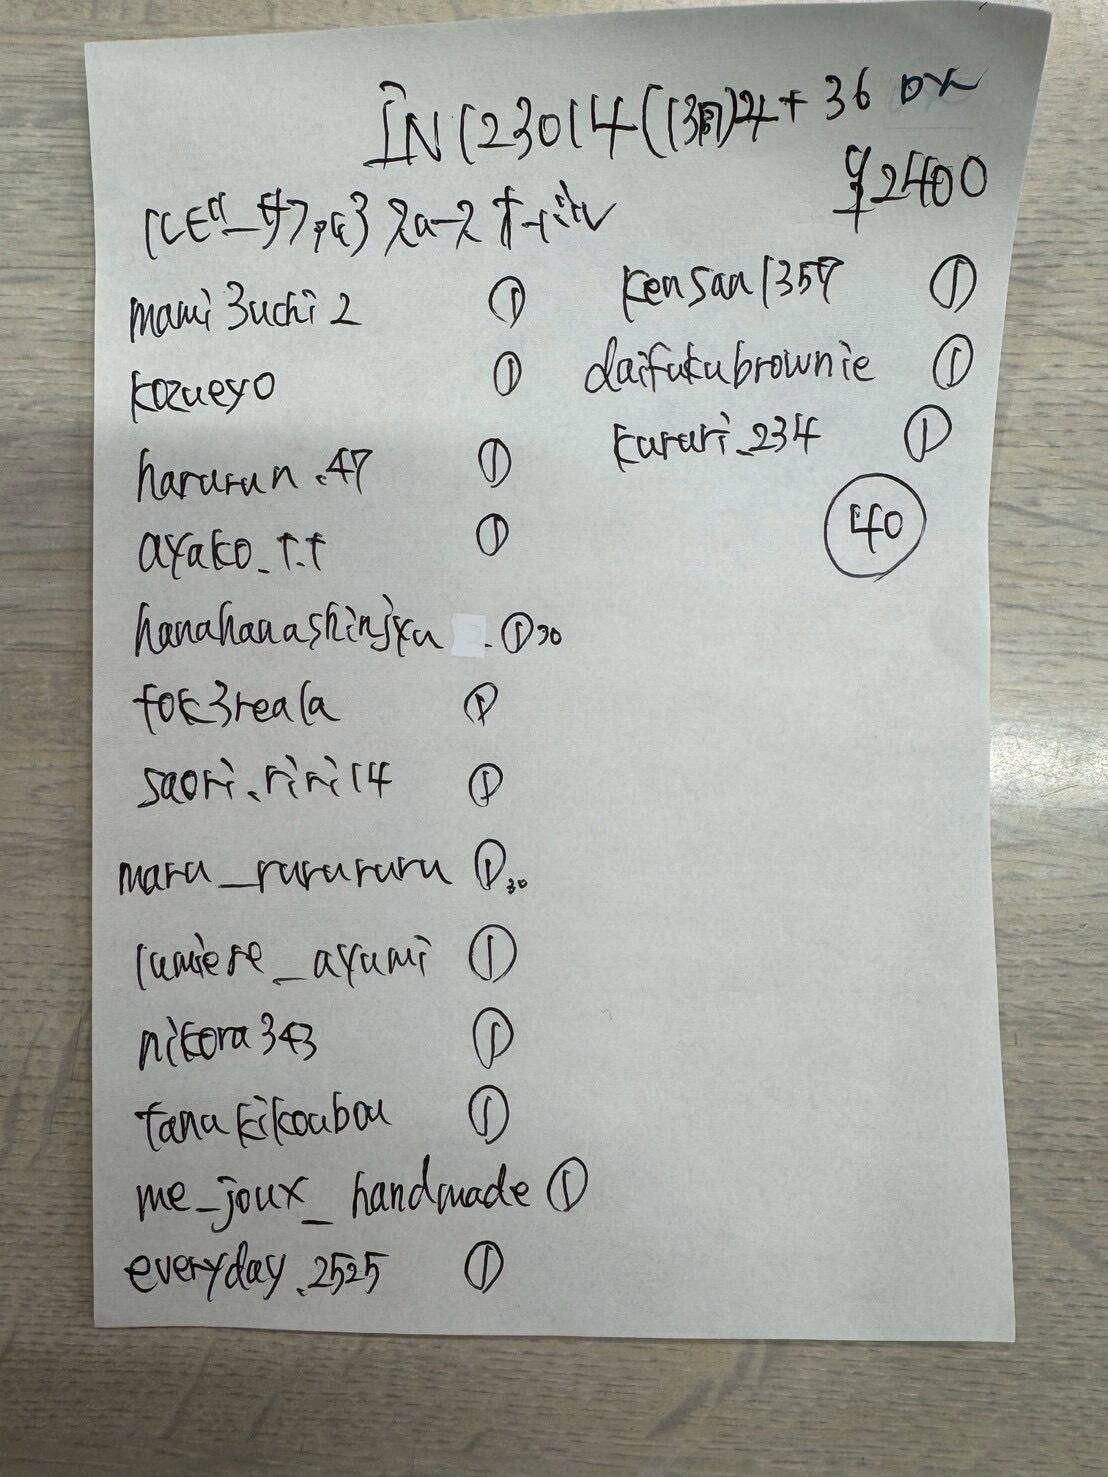 IN 123014 (13mm) 24+36 ox
¥2400
mami3uchi2 ①
kozueyo ①
harurun.47 ①
ayako_t.t ①
hanahanashinjyu ① 30
tok3reala ①
saori.riri14 ①
maru_rurururu ① 30
lumiere_ayumi ①
nikora343 ①
tanukikoubou ①
me_joux_handmade ①
everyday.2525 ①
kensan1357 ①
daifukubrownie ①
kururi_234 ①
40